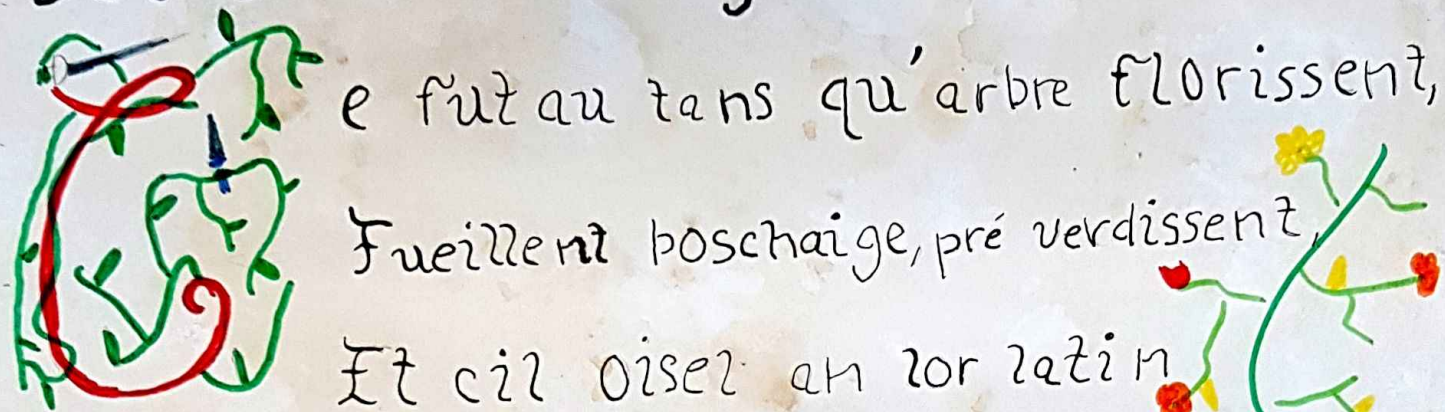 Ce fut au tans qu'arbre florissent,
Fueillent boschaige, pré verdissent,
Et cil oisel an lor latin